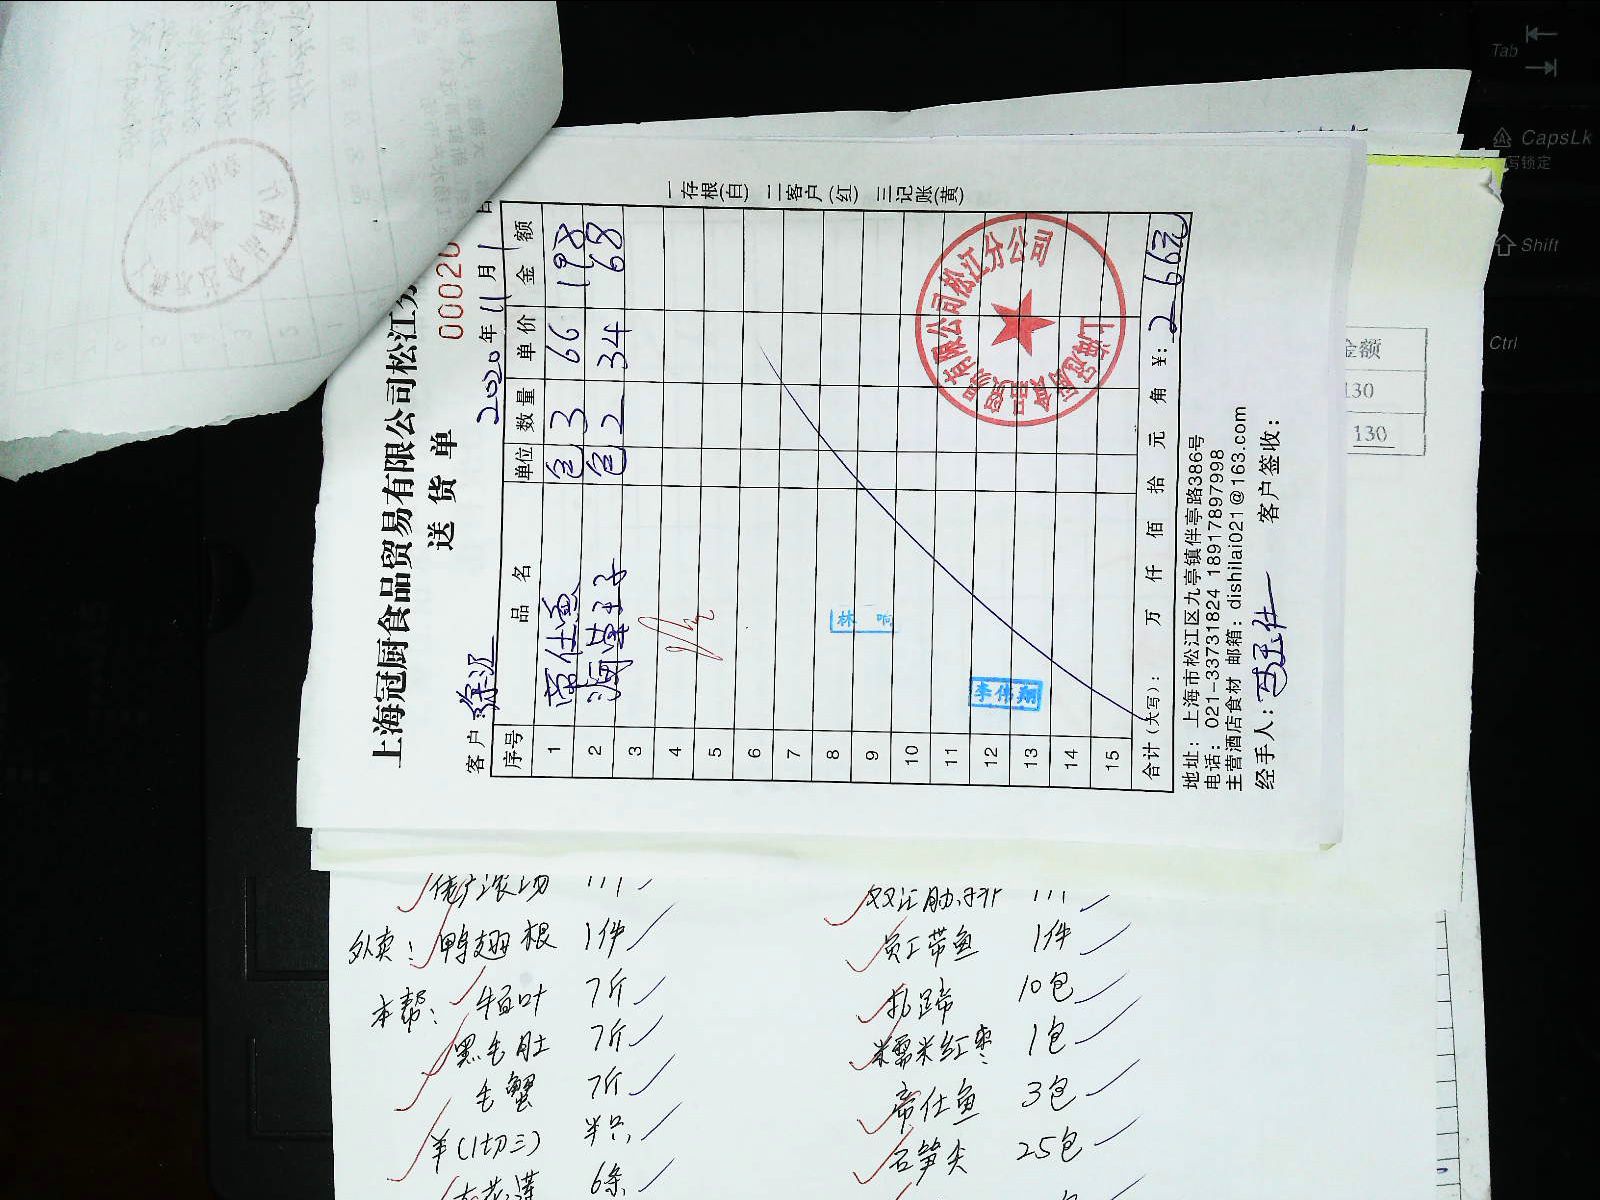 上海冠厨食品贸易有限公司松江分
送货单
00020
客户:徐汇
2020年11月1日
序号 品名 单位 数量 单价 金额
1 帝仕鱼 包 3 66 198
2 包 2 34 68
3
4
5
6
7
8
9
10
11
12
13
14
15
合计(大写): 万 仟 佰 拾 元 角 ¥:266元
地址:上海市松江区九亭镇伴亭路386号
电话:021-33731824 18917897998
主营酒店食材 邮箱:dishilai021@163.com
经手人: 客户签收:
一存根(白) 二客户(红) 三记账(黄)
上海冠厨食品贸易有限公司松江分公司
林 响
李伟翔
金额
130
130
外卖: 鸭翅根 1件
本帮: 牛百叶 7斤
黑毛肚 7斤
毛蟹 7斤
羊(1切三) 半只
6条
双汇肋排 111
员工带鱼 1件
扎蹄 10包
糯米红枣 1包
帝仕鱼 3包
石笋尖 25包
Tab
CapsLk
写锁定
Shift
Ctrl